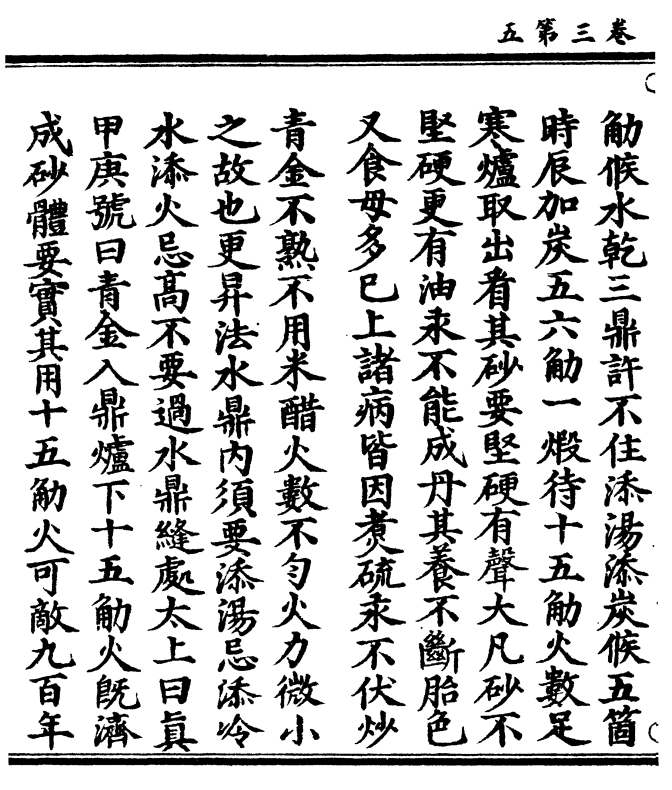 五第三卷
觔候水乾三鼎許不住添湯添炭候五箇
時辰加炭五六觔一煅待十五觔火數足
寒爐取出看其砂要堅硬有聲大凡砂不
堅硬更有油汞不能成丹其養不斷胎色
又食母多已上諸病皆因煮硫汞不伏炒
青金不熟不用米醋火數不勻火力微小
之故也更昇法水鼎內須要添湯忌添冷
水添火忌高不要過水鼎縫處太上曰真
甲庚號曰青金入鼎爐下十五觔火既濟
成砂體要實其用十五觔火可敵九百年